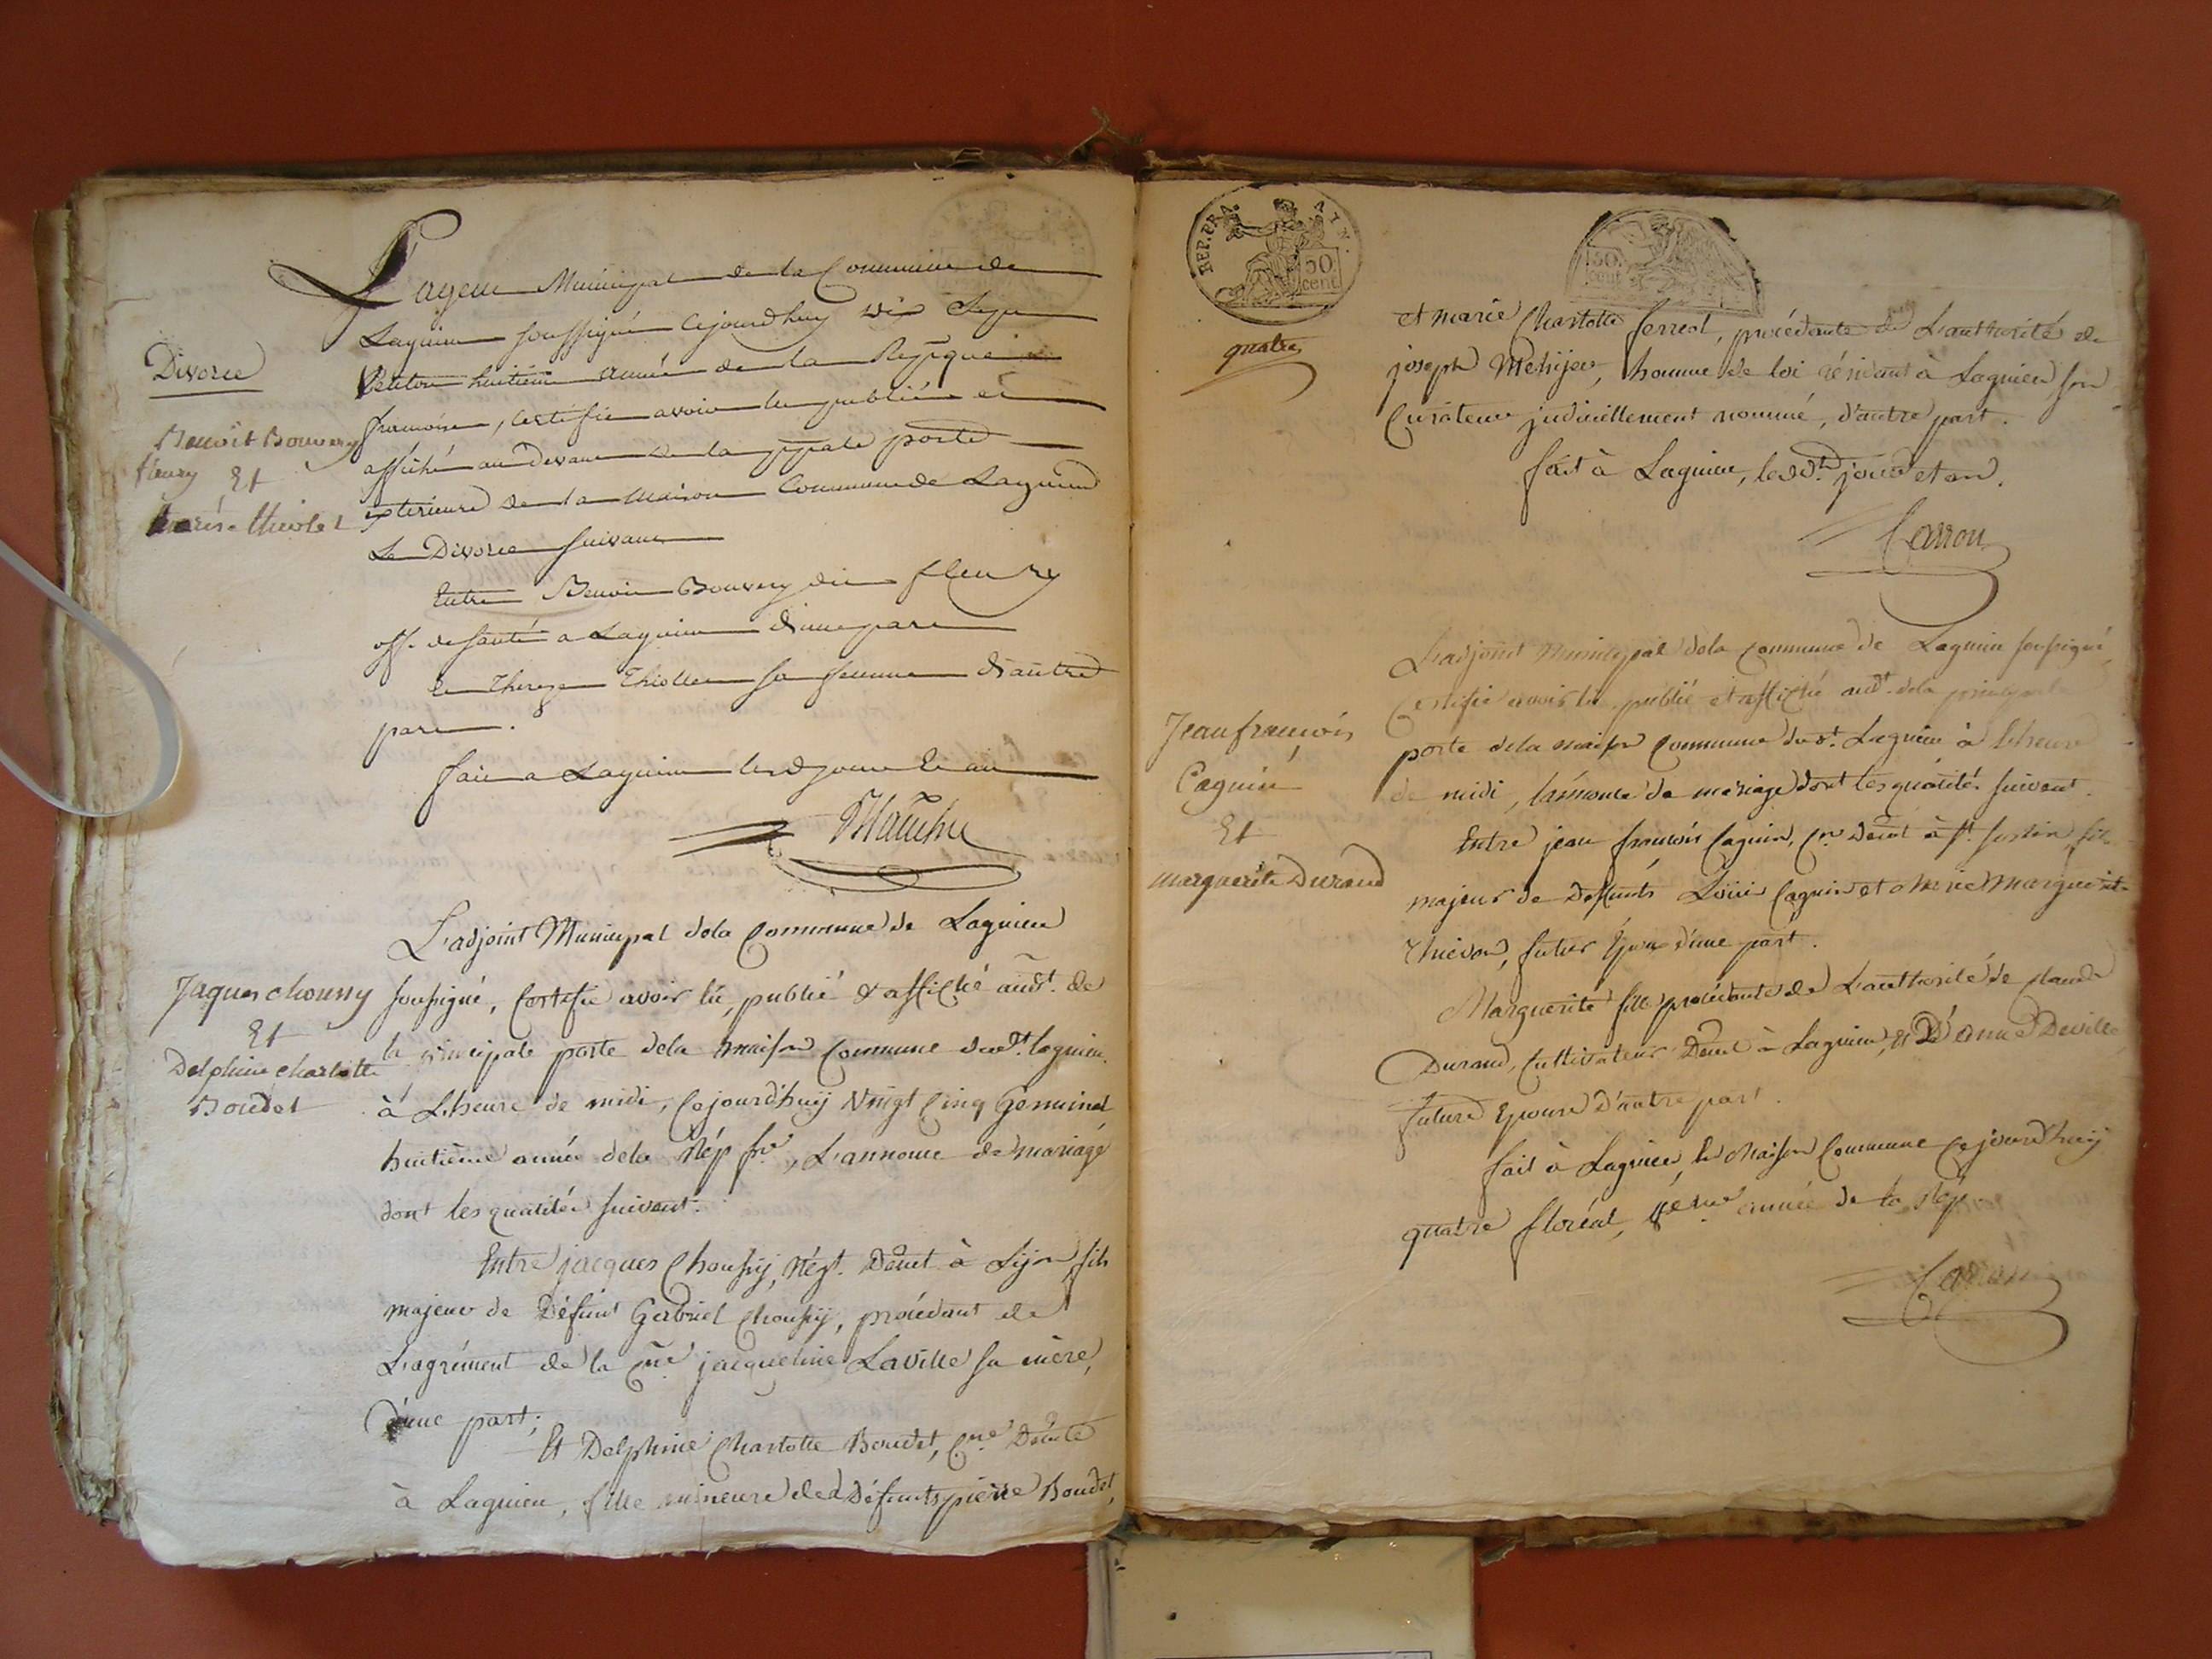 Divorce
Benoît Bouvery
fleury Et
Thiolet
L'agent Municipal de la Commune de
Lagnieu soussigné Cejourdhuy dix Sept
Ventose huitieme année de la Repique
francoise, Certifie avoir lu publié et
affiché au devant de la ppale porte
exterieure de la Maison Commune de Lagnieu
Le Divorce suivant
Entre Benoit Bouvery dit fleury
off. de santé a Lagnieu d'une part
et Thereze Thiollet sa femme d'autre
part.
fait a Lagnieu led jour et an
Jaques choussy
Et
Delphine charlotte
Boudet
L'adjoint Municipal dela Commune de Lagnieu
soussigné, Certifie avoir lû, publié & affiché audt. de
la principale porte dela maison Commune dudt. lagnieu
à L'heure de midi, Cejourd'huÿ Vingt Cinq Germinal
huitième année dela Rép fse, L'annonce de mariage
dont les qualités suivent.
Entre jacques Choussÿ, Négt. Demt à Lÿon, fils
majeur de Défunt Gabriel Choussÿ, procédant de
L'agrément de la Cne jacqueline Laville sa mère,
d'une part;
Et Delphine Charlotte Boudet, Cne Demte
à Lagnieu, fille mineure de Défunts pierre Boudet,
REP. FRA. AIN.
50
cent
50
cent
quatre
et marie Charlotte ferrest, procédante de L'authorité de
joseph homme de loi résidant à Lagnieu son
Curateur judiciellement nommé, d'autre part.
fait à Lagnieu, led. jour et an.
Carron
Jean françois
Cagnin
Et
marguerite Durand
L'adjoint Municipal dela Commune de Lagnieu soussigné,
Certifie avoir lu publié et affiché audt. dela principale
porte dela maison Commune dudt. Lagnieu à L'heure
de midi, l'annonce de mariage dont les qualités suivent.
Entre jean françois Cagnin, Cn Demt à St. fils
majeur de Deffunts Louis Cagnin et Marie Marguerite
Thievon, futur Epoux d'une part.
Marguerite fille procédante de L'authorité de claude
Durand, Cultivateur Demt à Lagnieu, et D'anne Deville
future Epouse D'autre part.
fait à Lagnieu, la Maison Commune Cejourdhuÿ
quatre floréal, année de la Rép.
Carron